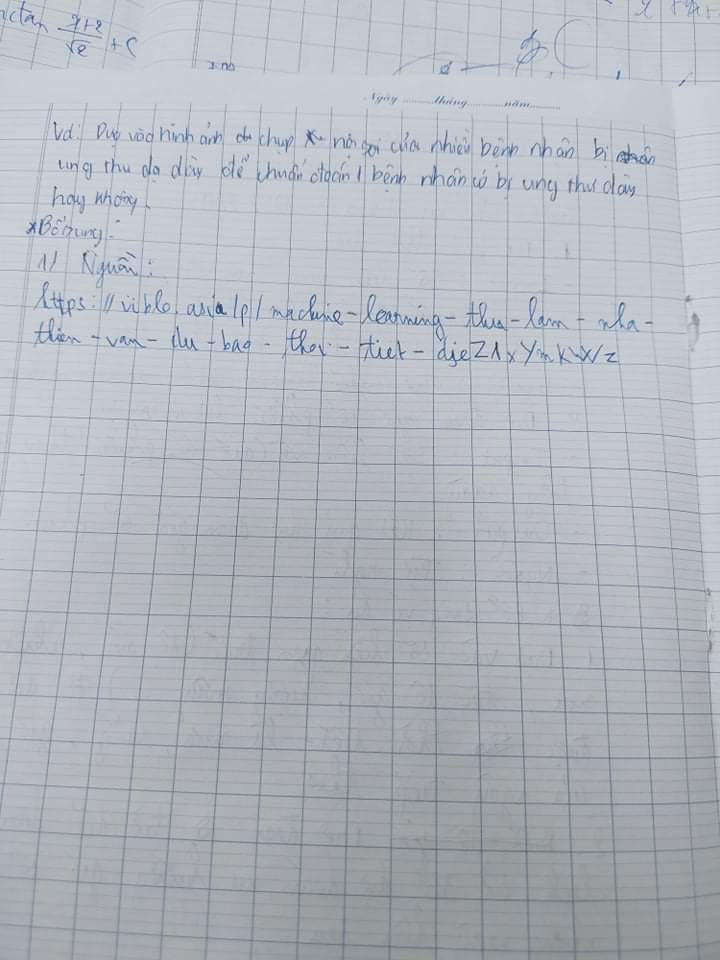 arctan x+2/√2 + C
Ngày ..........tháng..........năm..........
Vd: Dựa vào hình ảnh chụp nội soi của nhiều bệnh nhân bị
ung thư dạ dày để chuẩn đoán 1 bệnh nhân có bị ung thư dày
hay không.
*Bổ sung:
1) Nguồn:
https://viblo.asia/p/machine-learning-thua-lam-nha-
thien-van-du-bao-thoi-tiet-djeZ1xYmKWz